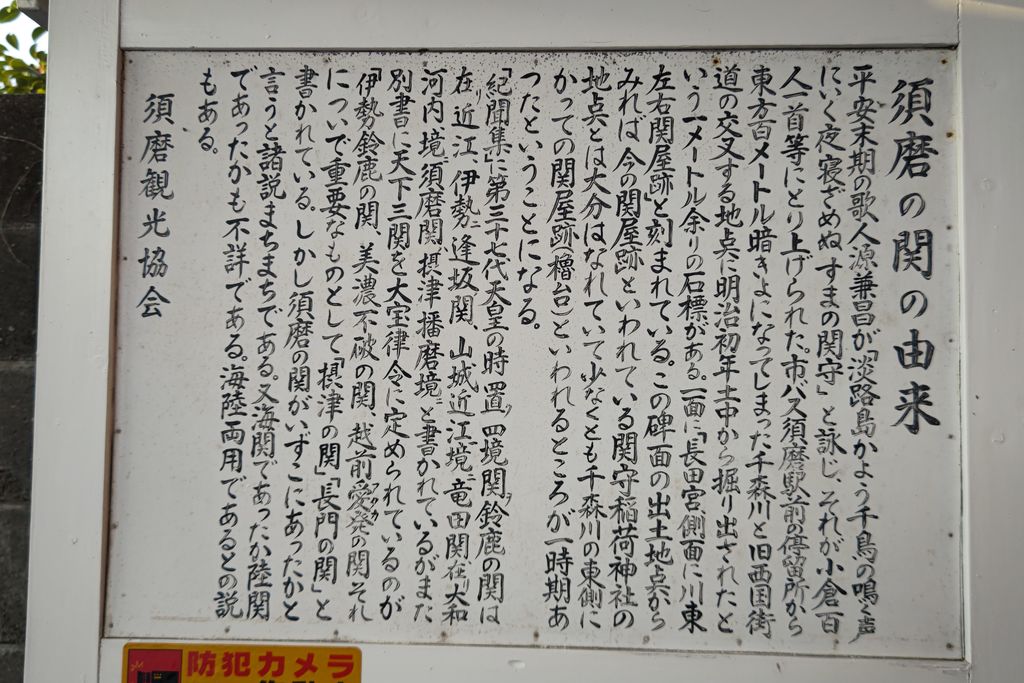 須磨の関の由来
平安末期の歌人源兼昌が「淡路島かよう千鳥の鳴く声
にいく夜寝ざめぬすまの関守」と詠じ、それが小倉百
人一首等にとり上げられた。市バス須磨駅前の停留所から
東方百メートル暗きよになってしまった千森川と旧西国街
道の交叉する地点に明治初年土中から掘り出されたと
いう一メートル余りの石標がある。一面に「長田宮」側面に「川東
左右関屋跡」と刻まれている。この碑面の出土地点から
みれば今の関屋跡といわれている関守稲荷神社の
地点とは大分はなれていて少なくとも千森川の東側に
かっての関屋跡(櫓台)といわれるところが一時期あ
つたということになる。
「紀聞集」に第三十七代天皇の時置ク四境関ヲ鈴鹿の関は
在リ近江、伊勢ニ逢坂関、山城近江境ニ竜田関在リ大和
河内境ニ須磨関ハ摂津播磨境ニと書かれているがまた
別書に天下三関を大宝律令に定められているのが
「伊勢鈴鹿の関 美濃不破の関 越前愛発の関」それ
について重要なものとして「摂津の関」「長門の関」と
書かれている。しかし須磨の関がいずこにあったかと
言うと諸説まちまちである。又海関であったか陸関
であったかも不詳である。海陸両用であるとの説
もある。
須磨観光協会
防犯カメラ